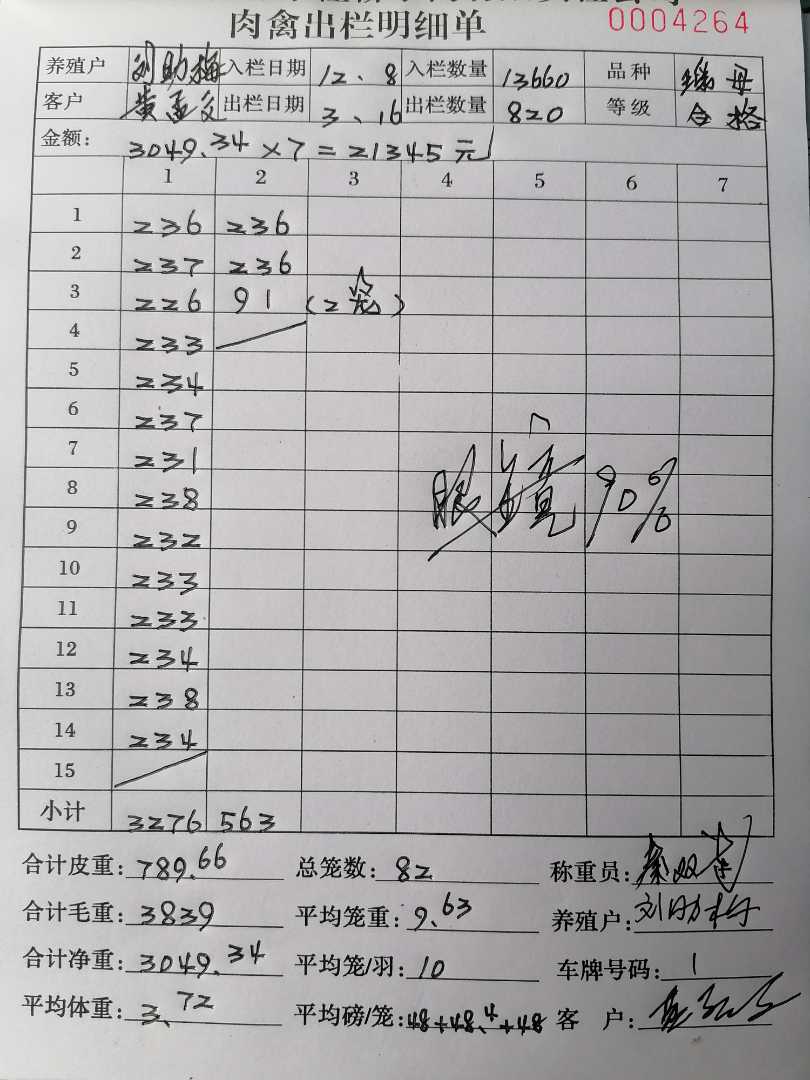 肉禽出栏明细单 0004264
养殖户 刘助梅 入栏日期 12、8 入栏数量 13660 品种 母
客户 黄孟 出栏日期 3、16 出栏数量 820 等级 合格
金额: 3049.34×7=21345元
1 2 3 4 5 6 7
1 236 236
2 237 236
3 226 91 (2笼)
4 233
5 234
6 237
7 231
8 238
9 232
10 233
11 233
12 234
13 238
14 234
15
眼镜90%
小计 3276 563
合计皮重: 789.66 总笼数: 82 称重员: 秦双
合计毛重: 3839 平均笼重: 9.63 养殖户: 刘助梅
合计净重: 3049.34 平均笼/羽: 10 车牌号码: 1
平均体重: 3.72 平均磅/笼: 48+48.4+48 客 户: